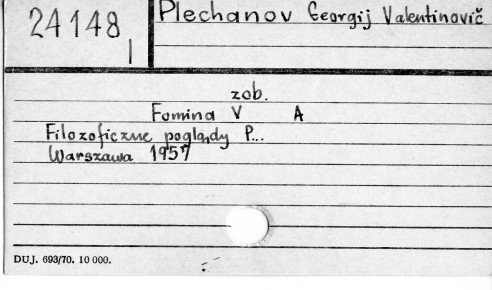 24148
I
Plechanov Georgij Valentinovič
zob.
Fomina V A
Filozoficzne poglądy P...
Warszawa 1957
DUJ. 693/70. 10 000.